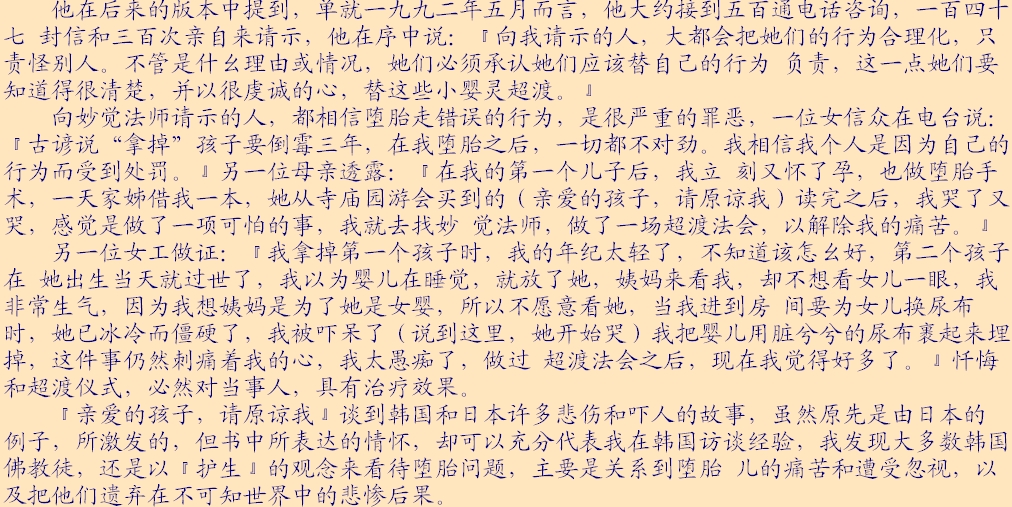 他在后来的版本中提到，单就一九九二年五月而言，他大约接到五百通电话咨询，一百四十
七 封信和三百次亲自来请示，他在序中说：『向我请示的人，大都会把她们的行为合理化，只
责怪别人。不管是什幺理由或情况，她们必须承认她们应该替自己的行为 负责，这一点她们要
知道得很清楚，并以很虔诚的心，替这些小婴灵超渡。』
向妙觉法师请示的人，都相信堕胎走错误的行为，是很严重的罪恶，一位女信众在电台说：
『古谚说“拿掉”孩子要倒霉三年，在我堕胎之后，一切都不对劲。我相信我个人是因为自己的
行为而受到处罚。』另一位母亲透露：『在我的第一个儿子后，我立 刻又怀了孕，也做堕胎手
术，一天家姊借我一本，她从寺庙园游会买到的（亲爱的孩子，请原谅我）读完之后，我哭了又
哭，感觉是做了一项可怕的事，我就去找妙 觉法师，做了一场超渡法会，以解除我的痛苦。』
另一位女工做证：『我拿掉第一个孩子时，我的年纪太轻了，不知道该怎幺好，第二个孩子
在 她出生当天就过世了，我以为婴儿在睡觉，就放了她，姨妈来看我，却不想看女儿一眼，我
非常生气，因为我想姨妈是为了她是女婴，所以不愿意看她，当我进到房 间要为女儿换尿布
时，她已冰冷而僵硬了，我被吓呆了（说到这里，她开始哭）我把婴儿用脏兮兮的尿布裹起来埋
掉，这件事仍然刺痛着我的心，我太愚痴了，做过 超渡法会之后，现在我觉得好多了。』忏悔
和超渡仪式，必然对当事人，具有治疗效果。
『亲爱的孩子，请原谅我』谈到韩国和日本许多悲伤和吓人的故事，虽然原先是由日本的
例子，所激发的，但书中所表达的情怀，却可以充分代表我在韩国访谈经验，我发现大多数韩国
佛教徒，还是以『护生』的观念来看待堕胎问题，主要是关系到堕胎 儿的痛苦和遭受忽视，以
及把他们遗弃在不可知世界中的悲惨后果。